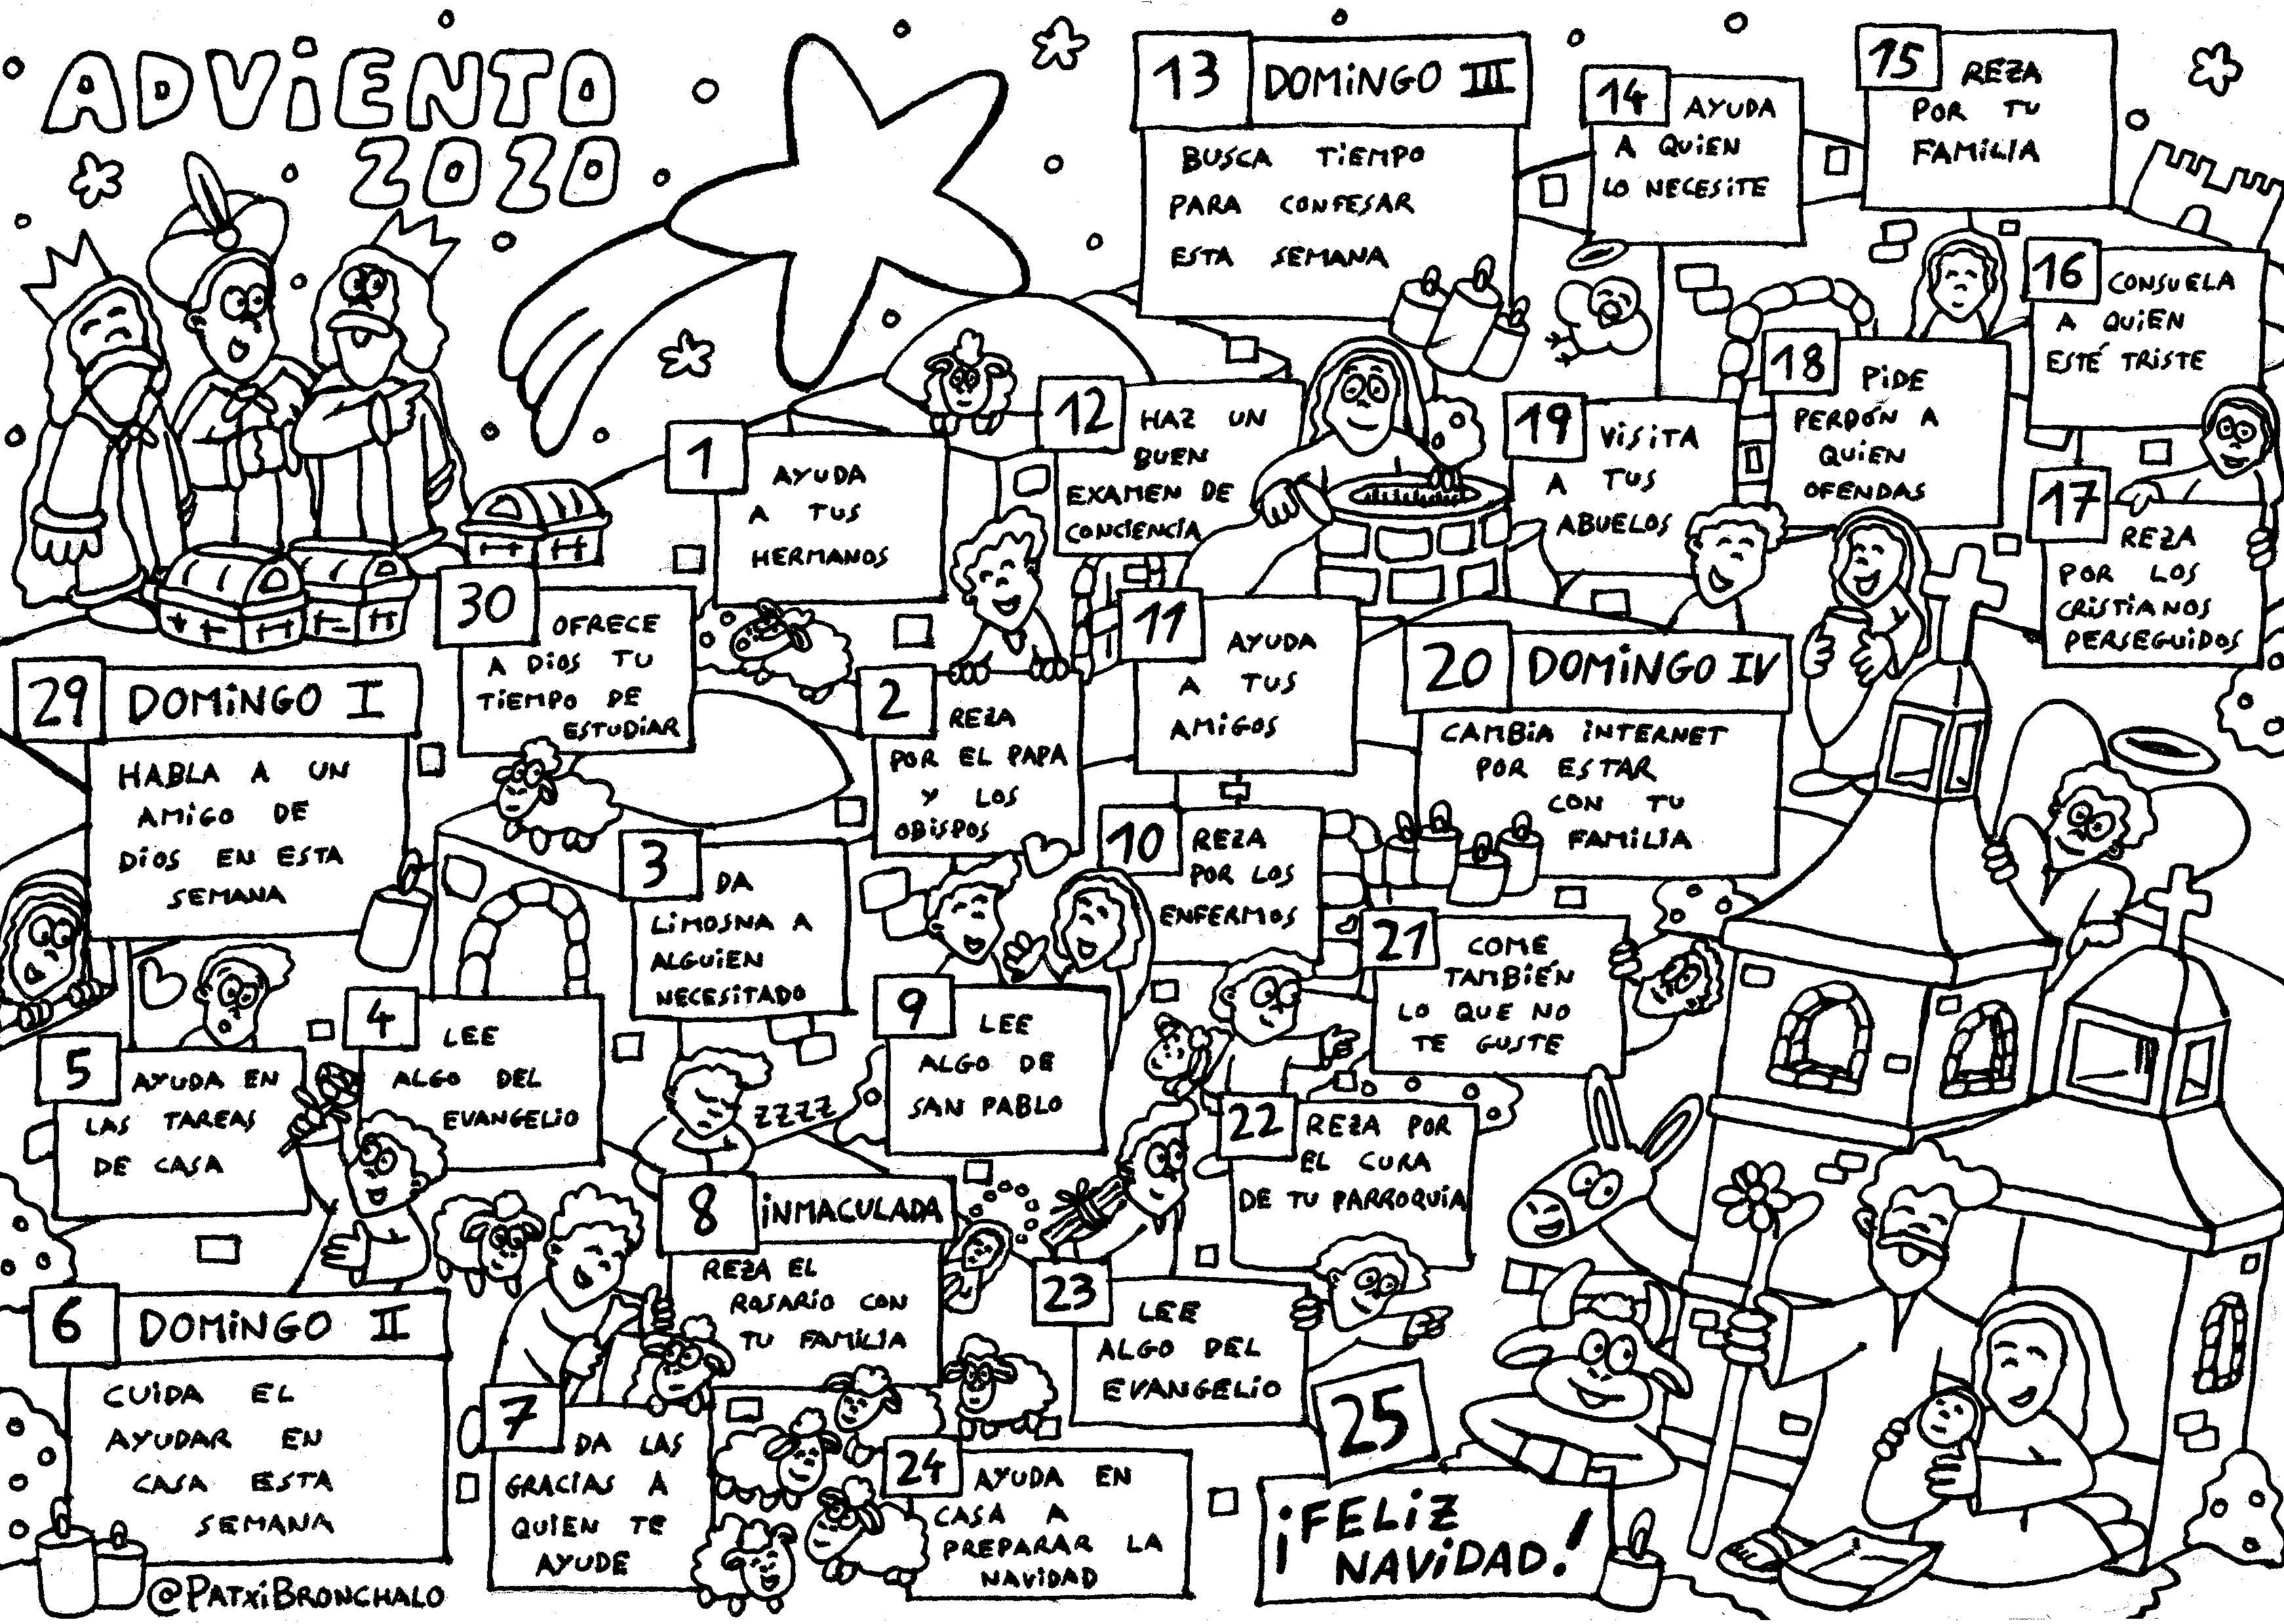 ADViENTO
2020
29 DOMiNGO I
HABLA A UN
AMiGO DE
DiOS EN ESTA
SEMANA
30 OFRECE
A DiOS TU
TiEMPO DE
ESTUDiAR
1 AYUDA
A TUS
HERMANOS
2 REZA
POR EL PAPA
Y LOS
OBiSPOS
3 DA
LiMOSNA A
ALGUiEN
NECESiTADO
4 LEE
ALGO DEL
EVANGELiO
5 AYUDA EN
LAS TAREAS
DE CASA
6 DOMiNGO II
CUiDA EL
AYUDAR EN
CASA ESTA
SEMANA
7 DA LAS
GRACiAS A
QUiEN TE
AYUDE
8 iNMACULADA
REZA EL
ROSARiO CON
TU FAMiLiA
ZZZZ
9 LEE
ALGO DE
SAN PABLO
10 REZA
POR LOS
ENFERMOS
11 AYUDA
A TUS
AMiGOS
12 HAZ UN
BUEN
EXAMEN DE
CONCiENCiA
13 DOMiNGO III
BUSCA TiEMPO
PARA CONFESAR
ESTA SEMANA
14 AYUDA
A QUiEN
LO NECESiTE
15 REZA
POR TU
FAMiLiA
16 CONSUELA
A QUiEN
ESTÉ TRiSTE
17 REZA
POR LOS
CRiSTiANOS
PERSEGUiDOS
18 PiDE
PERDÓN A
QUiEN
OFENDAS
19 ViSiTA
A TUS
ABUELOS
20 DOMiNGO IV
CAMBiA iNTERNET
POR ESTAR
CON TU
FAMiLiA
21 COME
TAMBiÉN
LO QUE NO
TE GUSTE
22 REZA POR
EL CURA
DE TU PARROQUiA
23 LEE
ALGO DEL
EVANGELiO
24 AYUDA EN
CASA A
PREPARAR LA
NAViDAD
25
¡FELiZ
NAViDAD!
@PATXiBRONCHALO